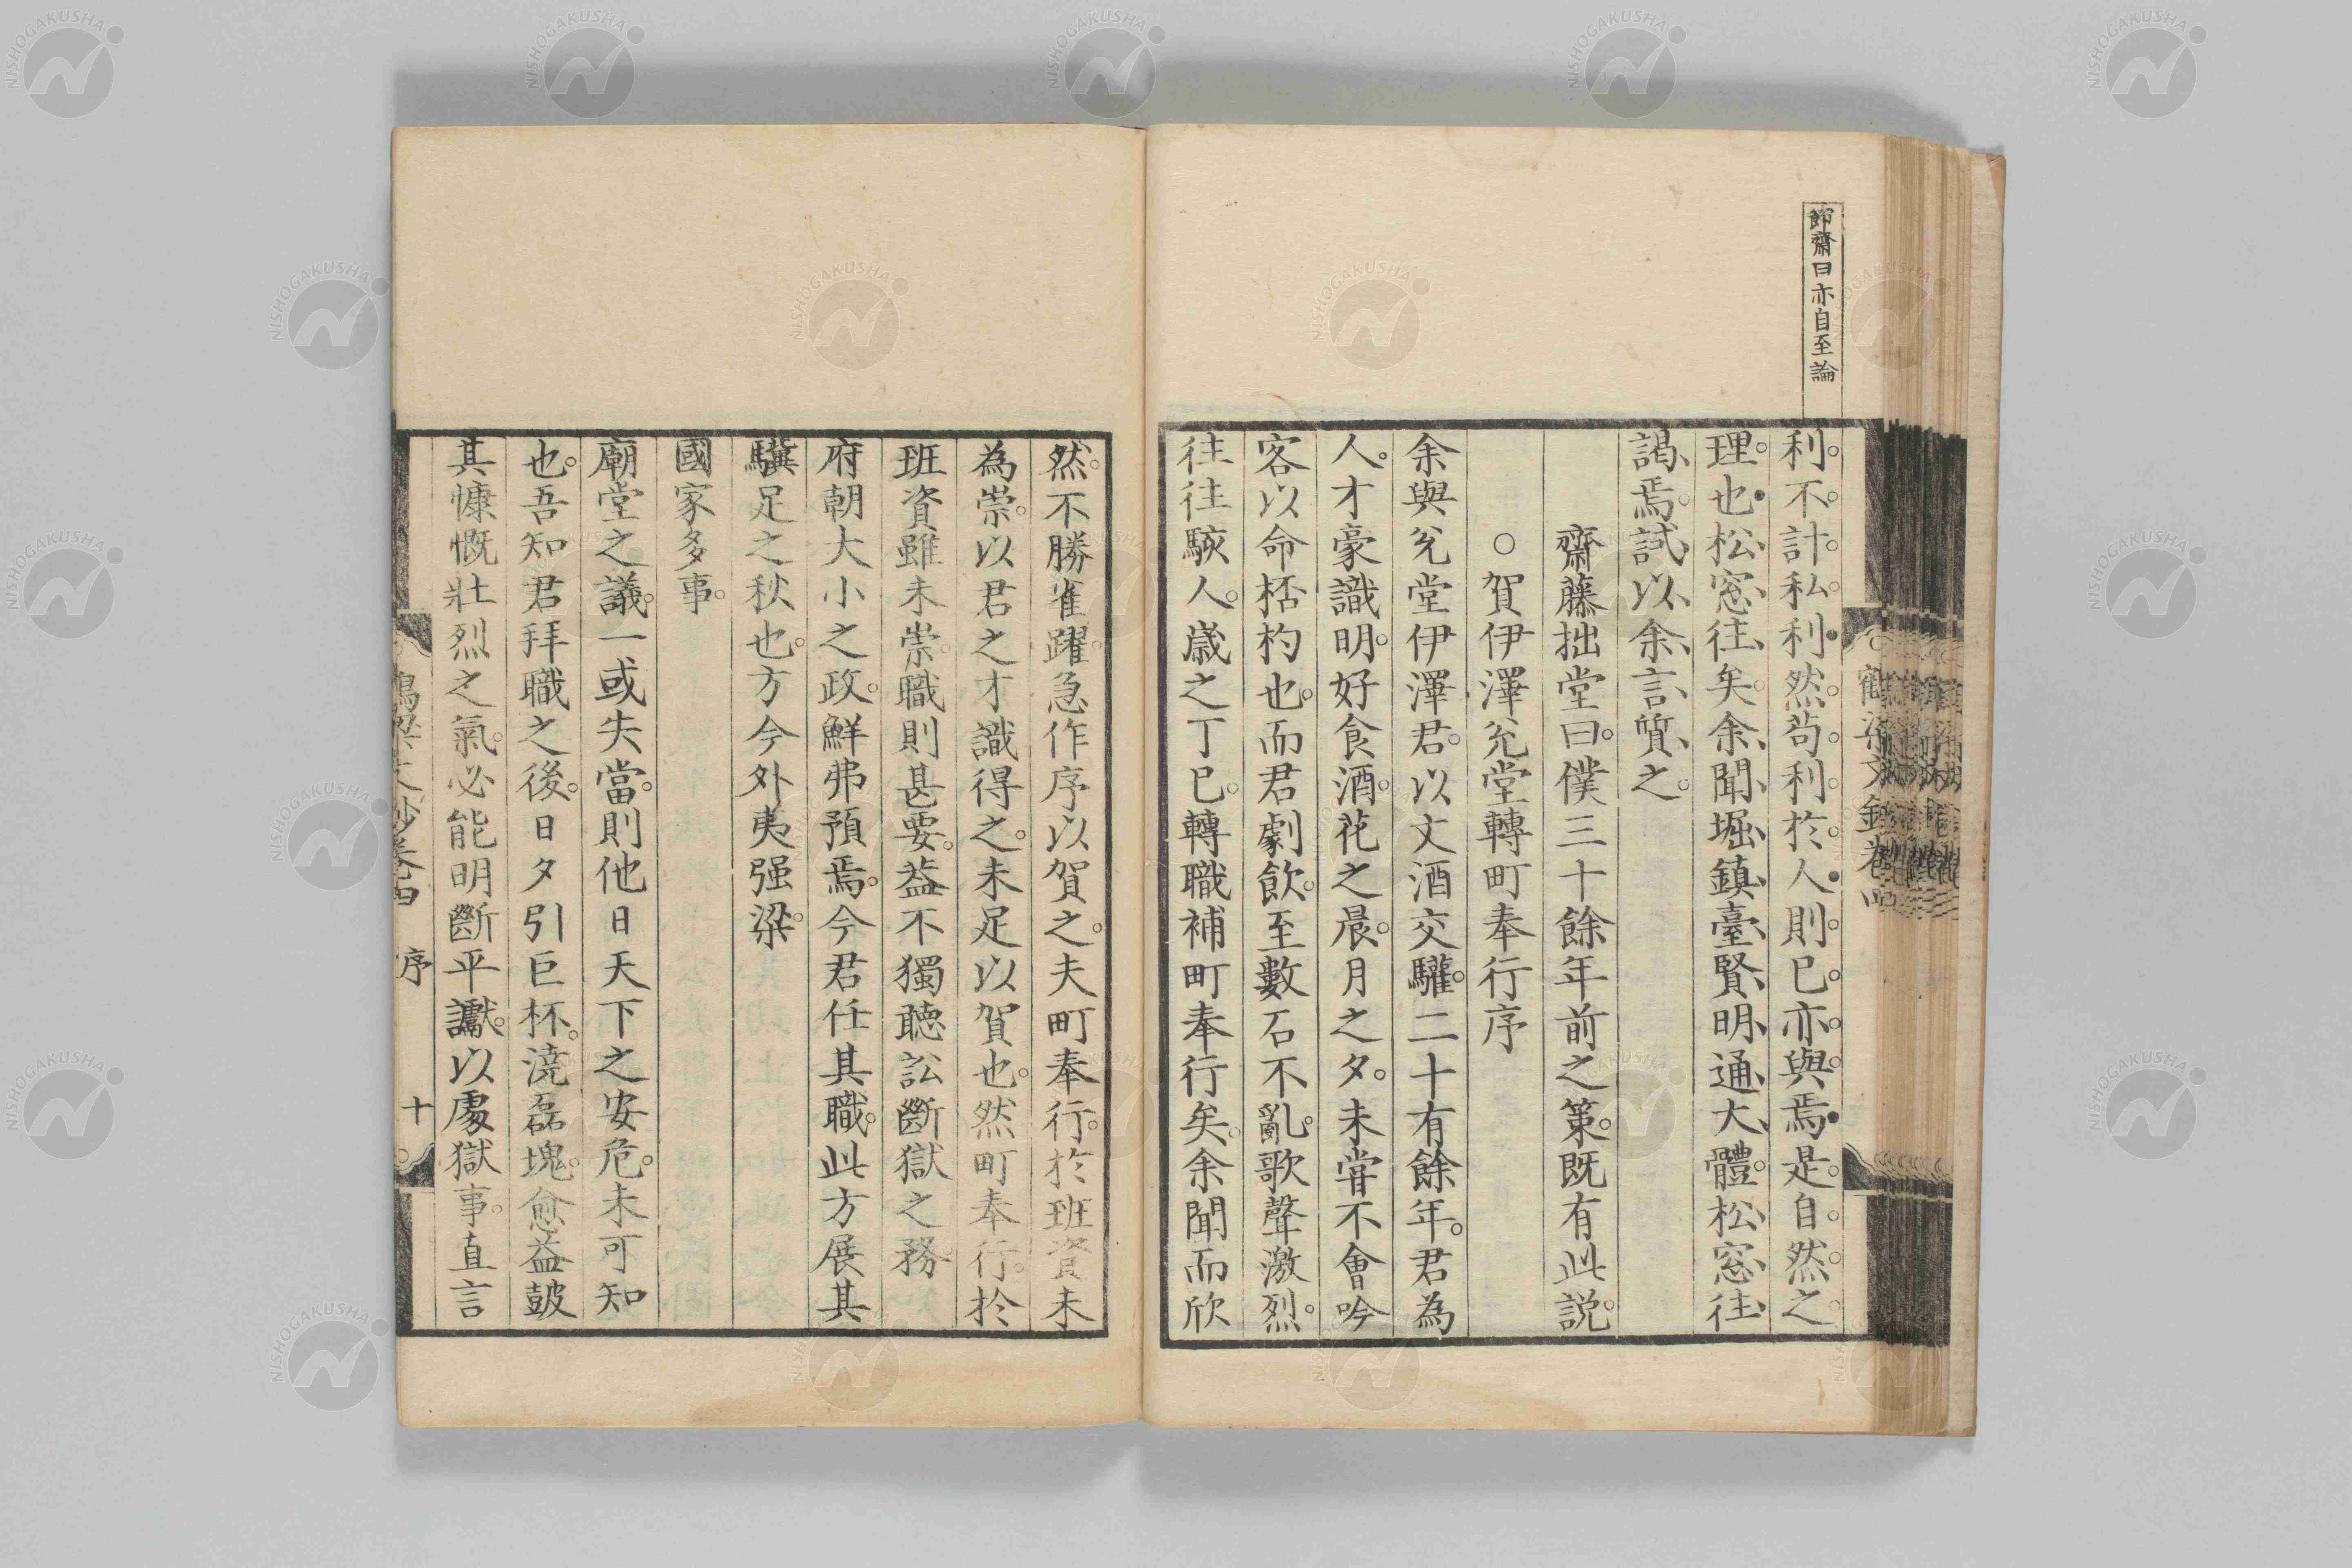 節齋曰亦自至論
利不計私利然苟利於人則已亦與焉是自然之
理也松窓往矣余聞堀鎮臺賢明通大體松窓往
謁焉試以余言質之
齋藤拙堂曰僕三十餘年前之策既有此説
○賀伊澤兊堂轉町奉行序
余與兊堂伊澤君以文酒交驩二十有餘年君為
人才豪識明好食酒花之晨月之夕未甞不會吟
客以命桮杓也而君劇飲至數石不亂歌聲激烈
往往駭人歳之丁巳轉職補町奉行矣余聞而欣
然不勝雀躍急作序以賀之夫町奉行於班資未
為崇以君之才識得之未足以賀也然町奉行於
班資雖未崇職則甚要葢不獨聴訟斷獄之務
府朝大小之政鮮弗預焉今君任其職此方展其
驥足之秋也方今外夷强梁
國家多事
廟堂之議一或失當則他日天下之安危未可知
也吾知君拜職之後日夕引巨杯澆磊塊愈益皷
其慷慨壯烈之氣必能明斷平讞以處獄事直言
文鈔卷四 序 十
NISHOGAKUSHA